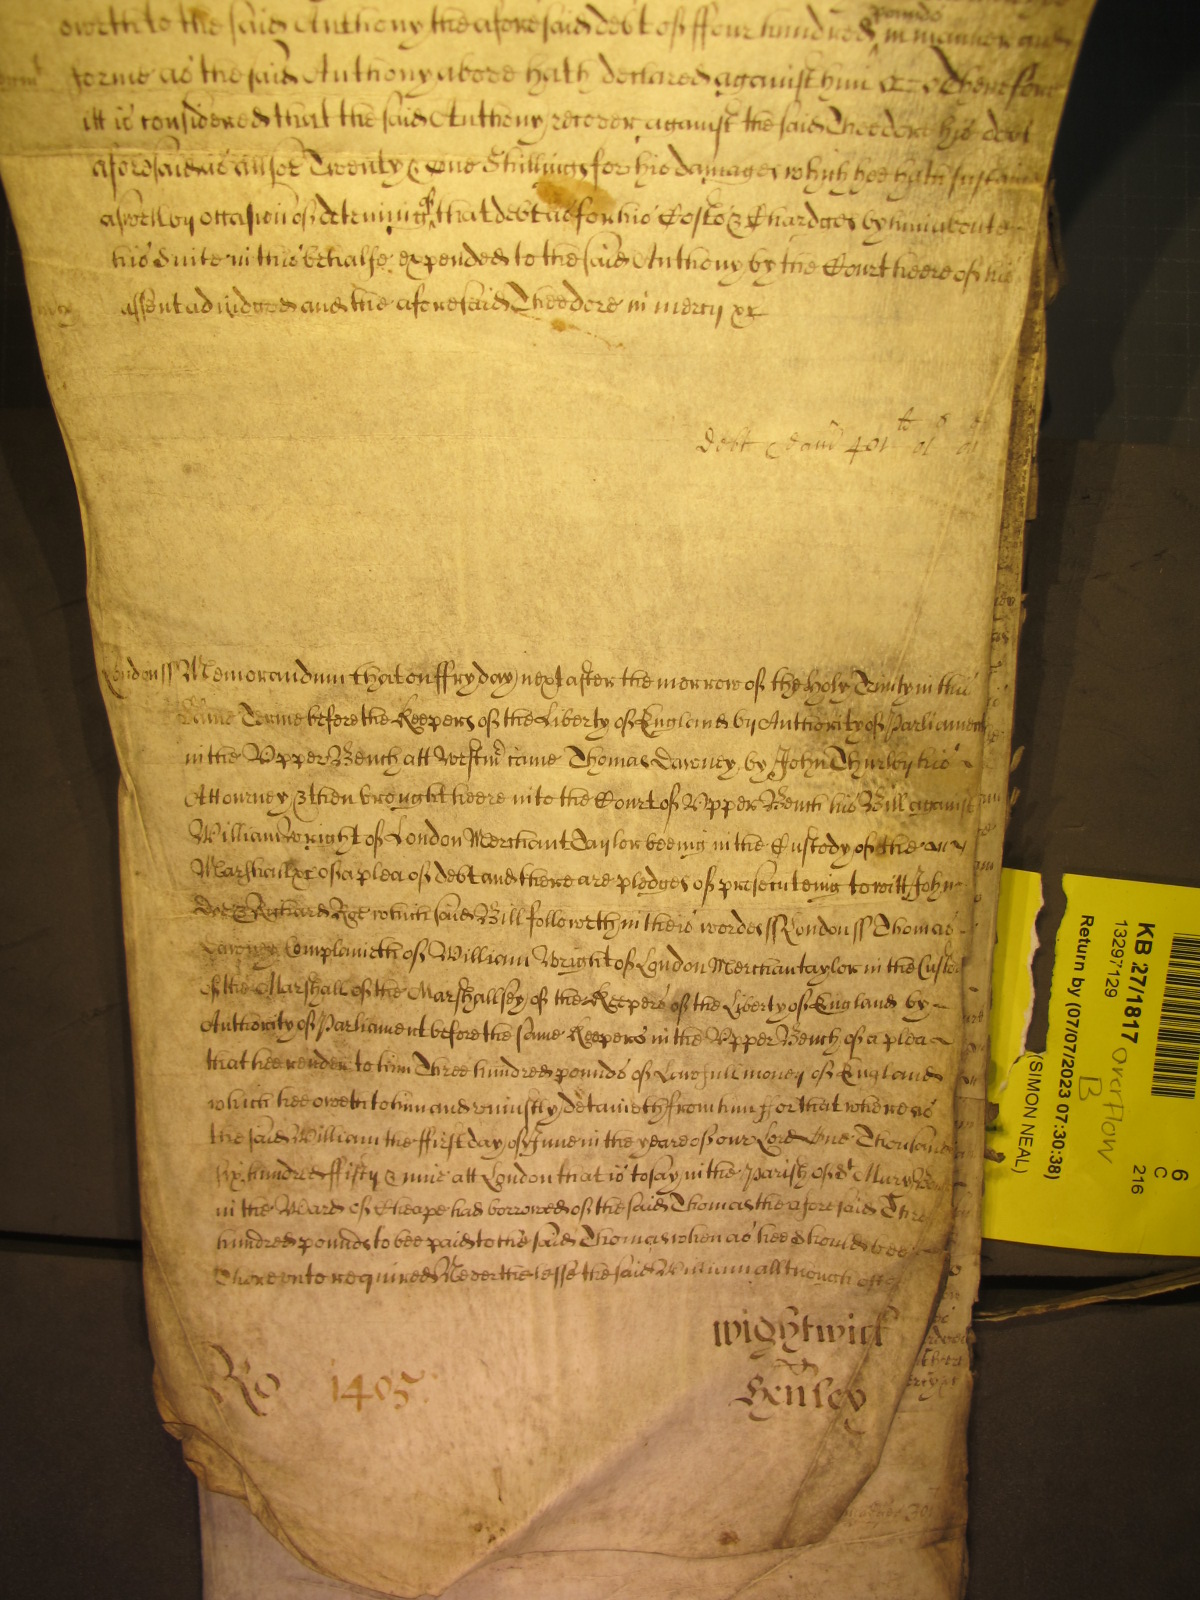 oweth to the said Anthony the aforesaid debt of ffour hundred pounds in manner and
forme as the said Anthony above hath declared against him &c Therefore
itt is considered that the said Anthony recover against the said Theodore his debt
aforesaid as allsoe Twenty & one Shillings for his damages which hee hath sustained
aswell by occasion of deteining of that debt as for his Costs & Chardges by him aboute
his Suite in this behalfe expended to the said Anthony by the Court heere of his
assent adiudged and the aforesaid Theodore in mercy &c
debt & dam 401 li 01 s 01 d
London ss Memorandum that on ffryday next after the morrow of the Holy Trinity in this
same Terme before the Keepers of the Liberty of England by Authority of Parliament
in the Upper Bench att Westmr came Thomas Dawney by John Thurley his
Attourney & then brought heere into the Court of Upper Bench his Bill against
William Wright of London Merchant Taylor beeing in the Custody of the
Marshall &c of a plea of debt and there are pledges of prosecuteing to witt John
Doe & Richard Roe which said Bill followeth in theis wordes ss London ss Thomas
Dawney Complaineth of William Wright of London Merchantaylor in the Custody
of the Marshall of the Marshallsey of the Keepers of the Liberty of England by
Authority of Parliament before the same Keepers in the Upper Bench of a plea
that hee render to him Three hundred pounds of Lawfull money of England
which hee oweth to him and uniustly detaineth from him ffor that whereas
the said William the ffirst day of June in the yeare of our Lord One Thousand
six hundred ffifty & nine att London that is to say in the Parish of St Mary
in the Ward of Cheape had borrowed of the said Thomas the aforesaid Three
hundred pounds to bee paid to the said Thomas when as hee should bee
thereunto required Neverthelesse the said William although often
Wightwick
Henley
Ro 1405
KB 27/1817
13297129
Return by (07/07/2023 07:30:38)
(SIMON NEAL)
overflow
B
6
C
216